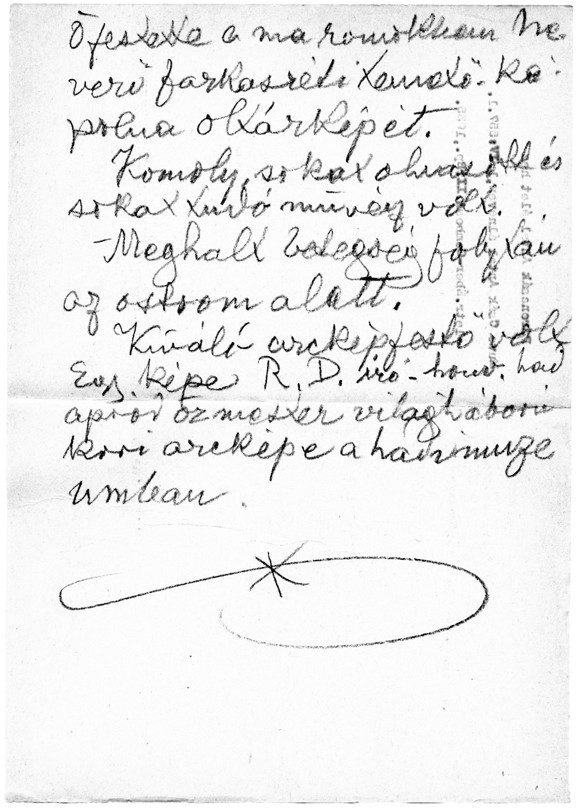 Ő festette a ma romokban he
verő farkasréti temető-ká-
polna oltárképét.
Komoly, sokat olvasott és
sokat tudó művész volt.
Meghalt betegség folytán
az ostrom alatt.
Kiváló arcképfestő volt
Egy képe R. D. iró - honv. had
apród őrmester világháború
kori arcképe a hadimuze
umban.